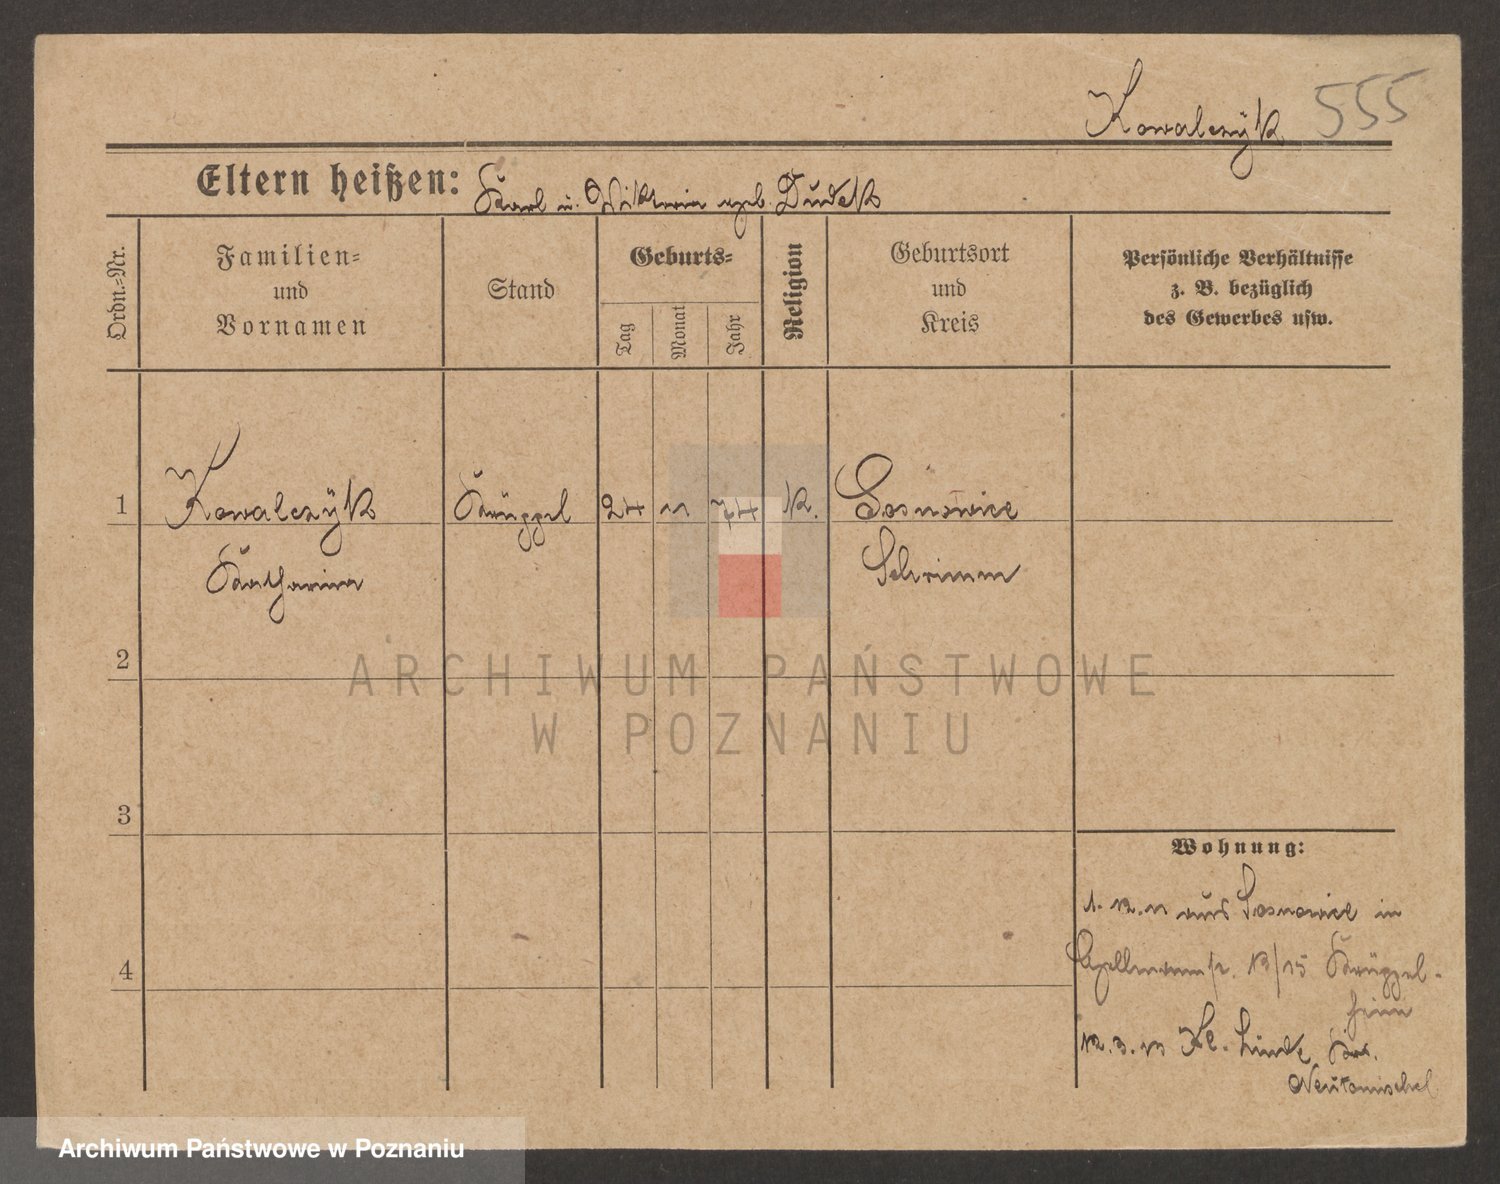 Kowalczyk 555
Eltern heißen: Karl u. Wiktoria geb. Dudek
Ordn.-Nr.
Familien-
und
Vornamen
Stand
Geburts-
Tag
Monat
Jahr
Religion
Geburtsort
und
Kreis
Persönliche Verhältnisse
z. B. bezüglich
des Gewerbes usw.
1 Kowalczyk Krüppel 24 11 74 K. Sosnowice
Katharina Schrimm
2
3
4
Wohnung:
1. 12. 11 aus Sosnowice in
13/15 Krüppel-
heim
12. 3. 13 Kl. Linde Krs.
Neutomischel
ARCHIWUM PAŃSTWOWE
W POZNANIU
Archiwum Państwowe w Poznaniu